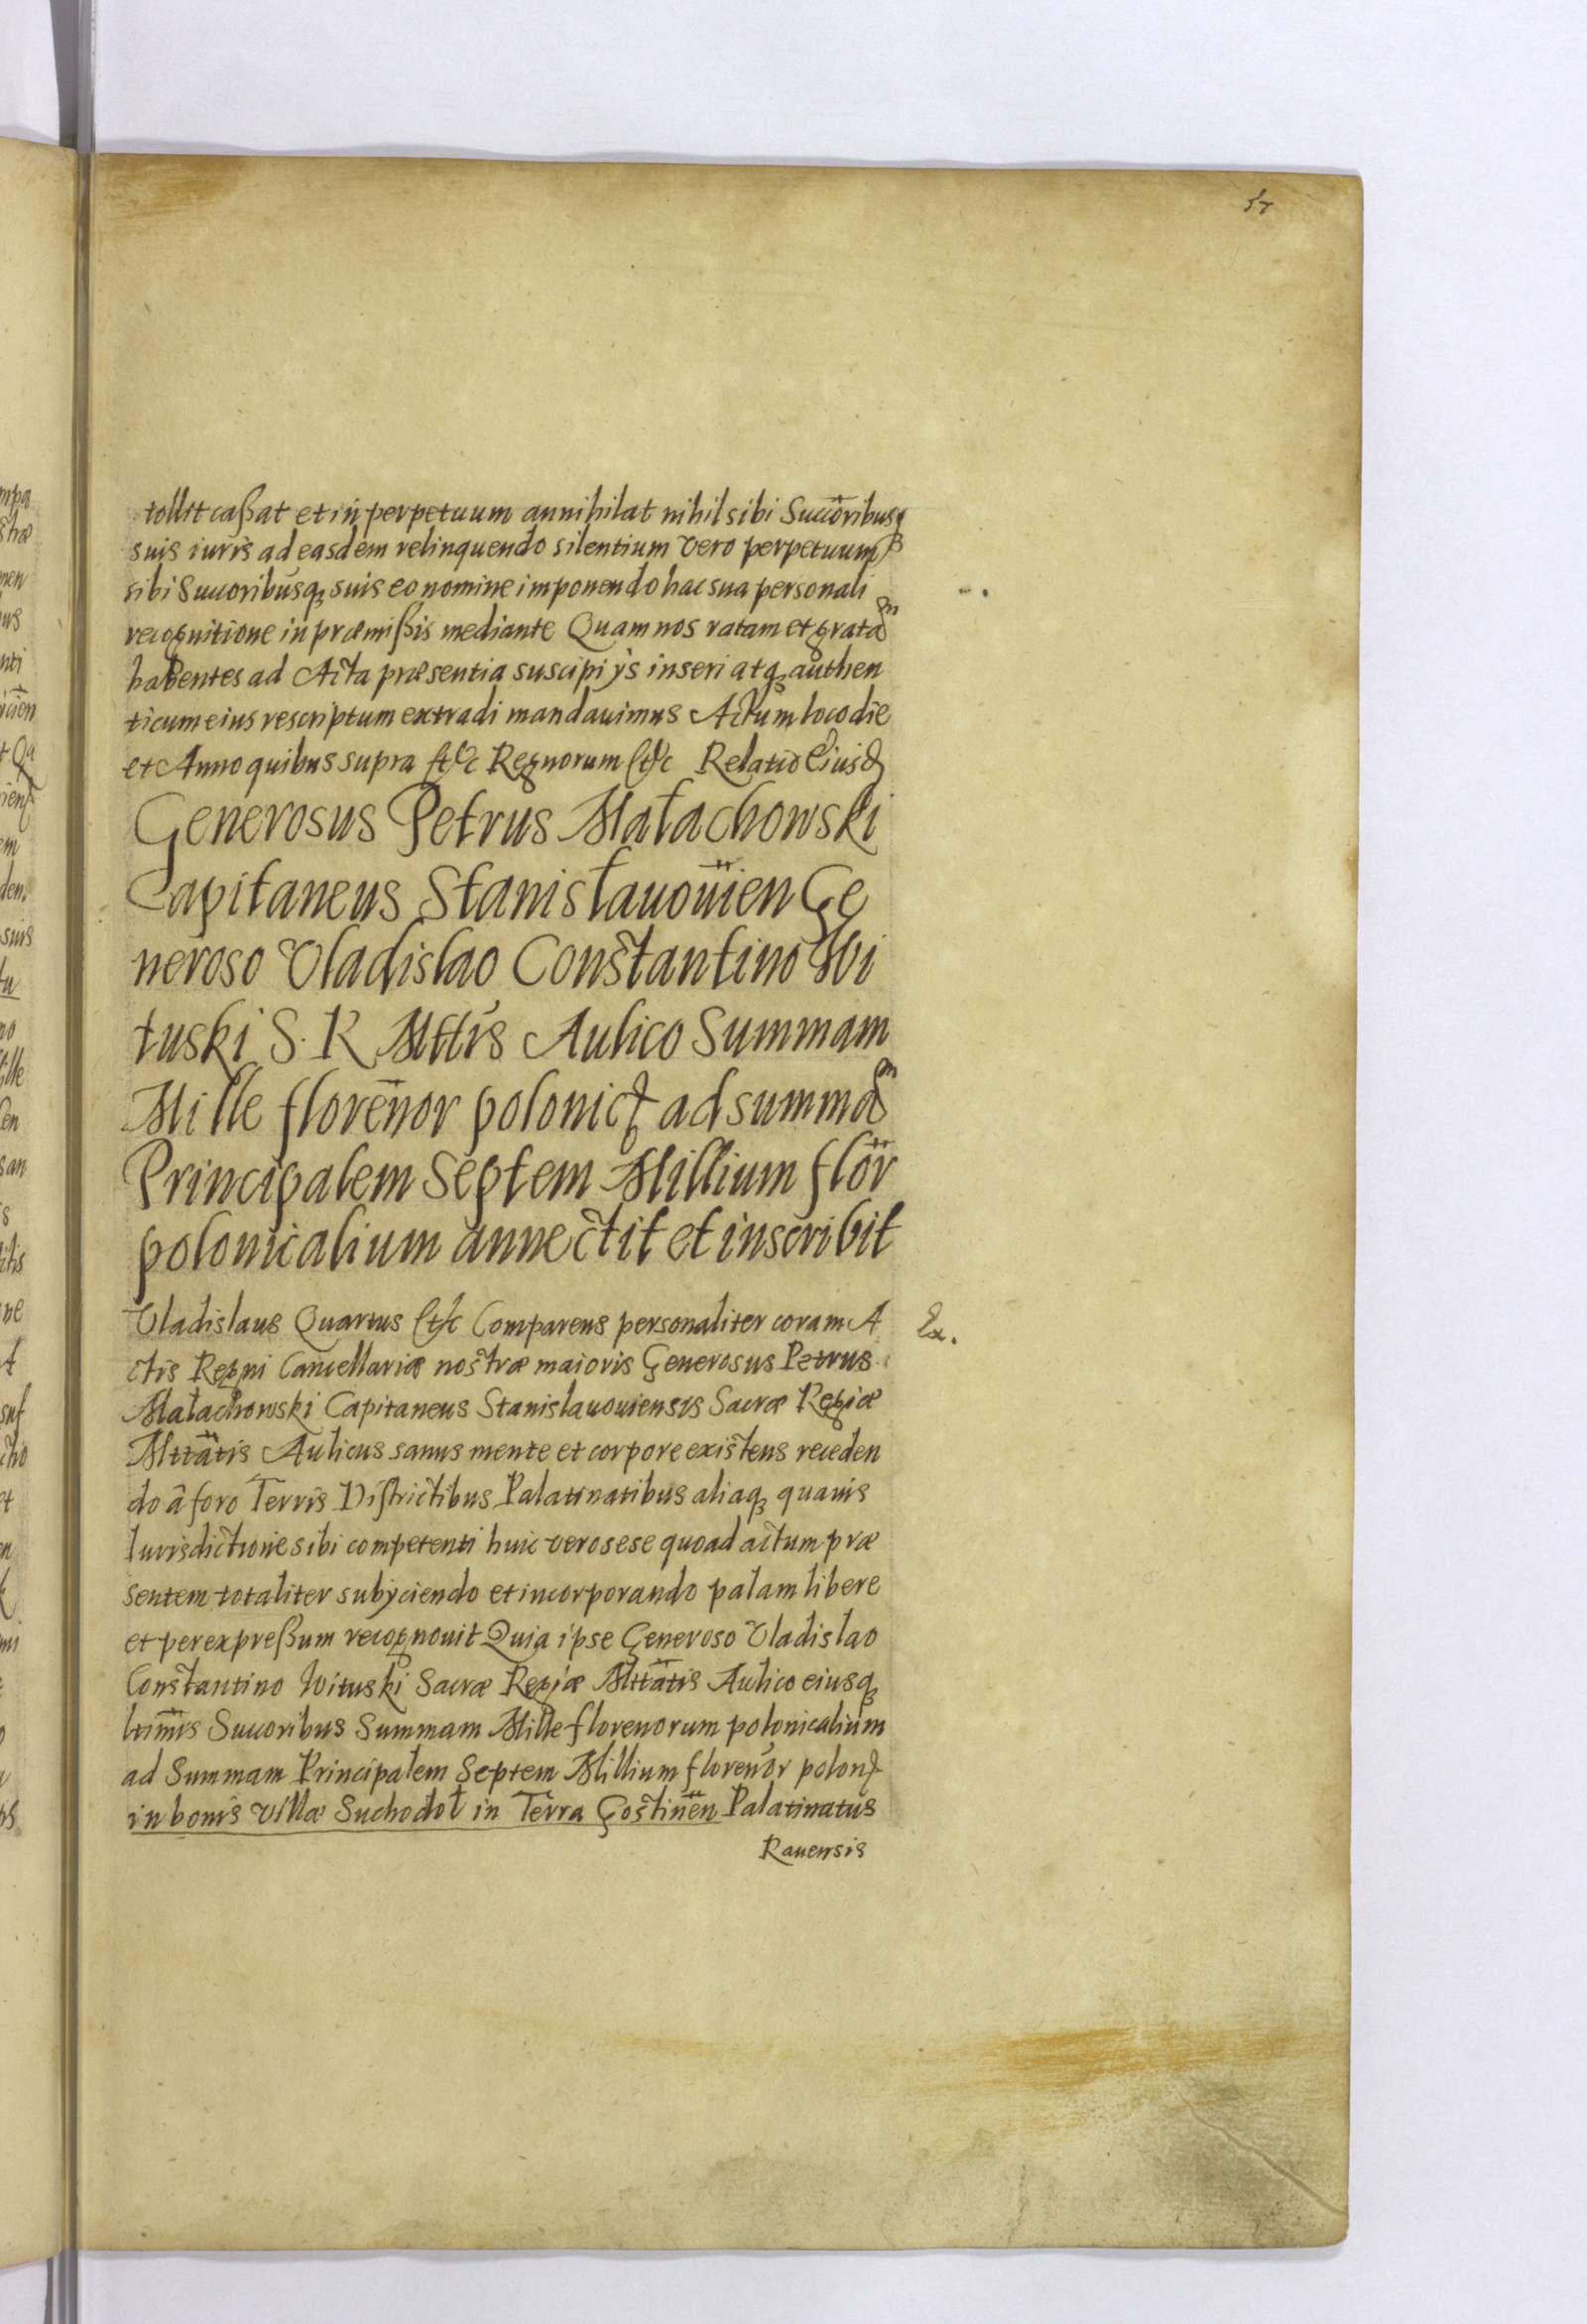 57
tollit caßat et in perpetuum annihilat nihil sibi Succoribusq
suis iuris ad easdem relinquendo silentium vero perpetuum
sibi Succoribusq suis eo nomine imponendo hac sua personali
recognitione in præmißis mediante Quam nos ratam et gratam
habentes ad Acta præsentia suscipi ÿs inseri atq authen
ticum eius rescriptum extradi mandauimus Actum loco die
et Anno quibus supra etc Regnorum etc Relatio Eiusd
Generosus Petrus Małachowski
Capitaneus Stanisłauouien Ge
neroso Vladislao Constantino Wi
tuski S. R Mttis Aulico Summam
Mille florenor polonic ad summam
Principalem Septem Millium flor
polonicalium annectit et inscribit
Vladislaus Quartus etc Comparens personaliter coram A
ctis Regni Cancellariæ nostræ maioris Generosus Petrus
Małachowski Capitaneus Stanislauouiensis Sacræ Regiæ
Mttatis Aulicus sanus mente et corpore existens receden
do â foro Terris Districtibus Palatinatibus aliaq quauis
Iurisdictione sibi competenti huic vero sese quoad actum præ
sentem totaliter subÿciendo et incorporando palam libere
et per expreßum recognouit Quia ipse Generoso Vladislao
Constantino Wituski Sacræ Regiæ Mttatis Aulico eiusq
ltimis Succoribus Summam Mille florenorum polonicalium
ad Summam Principalem Septem Millium florenor polon
in bonis villæ Suchodoł in Terra Gostinen Palatinatus
Rauensis